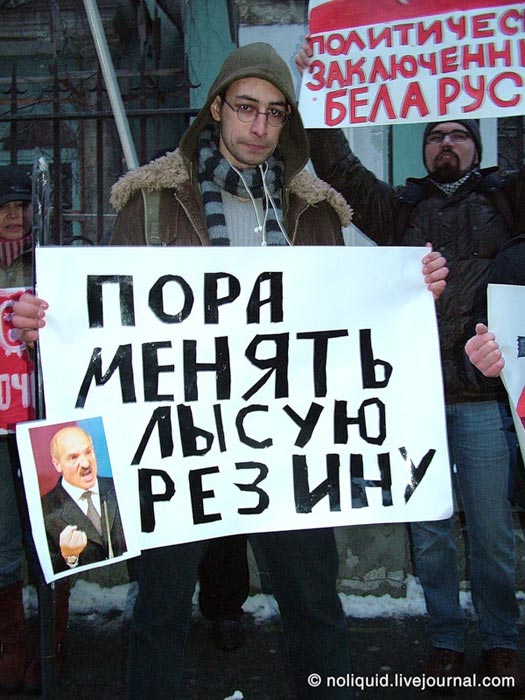 ПОЛИТИЧЕСК
ЗАКЛЮЧЕНН
БЕЛАРУС
ПОРА
МЕНЯТЬ
ЛЫСУЮ
РЕЗИНУ
© noliquid.livejournal.com